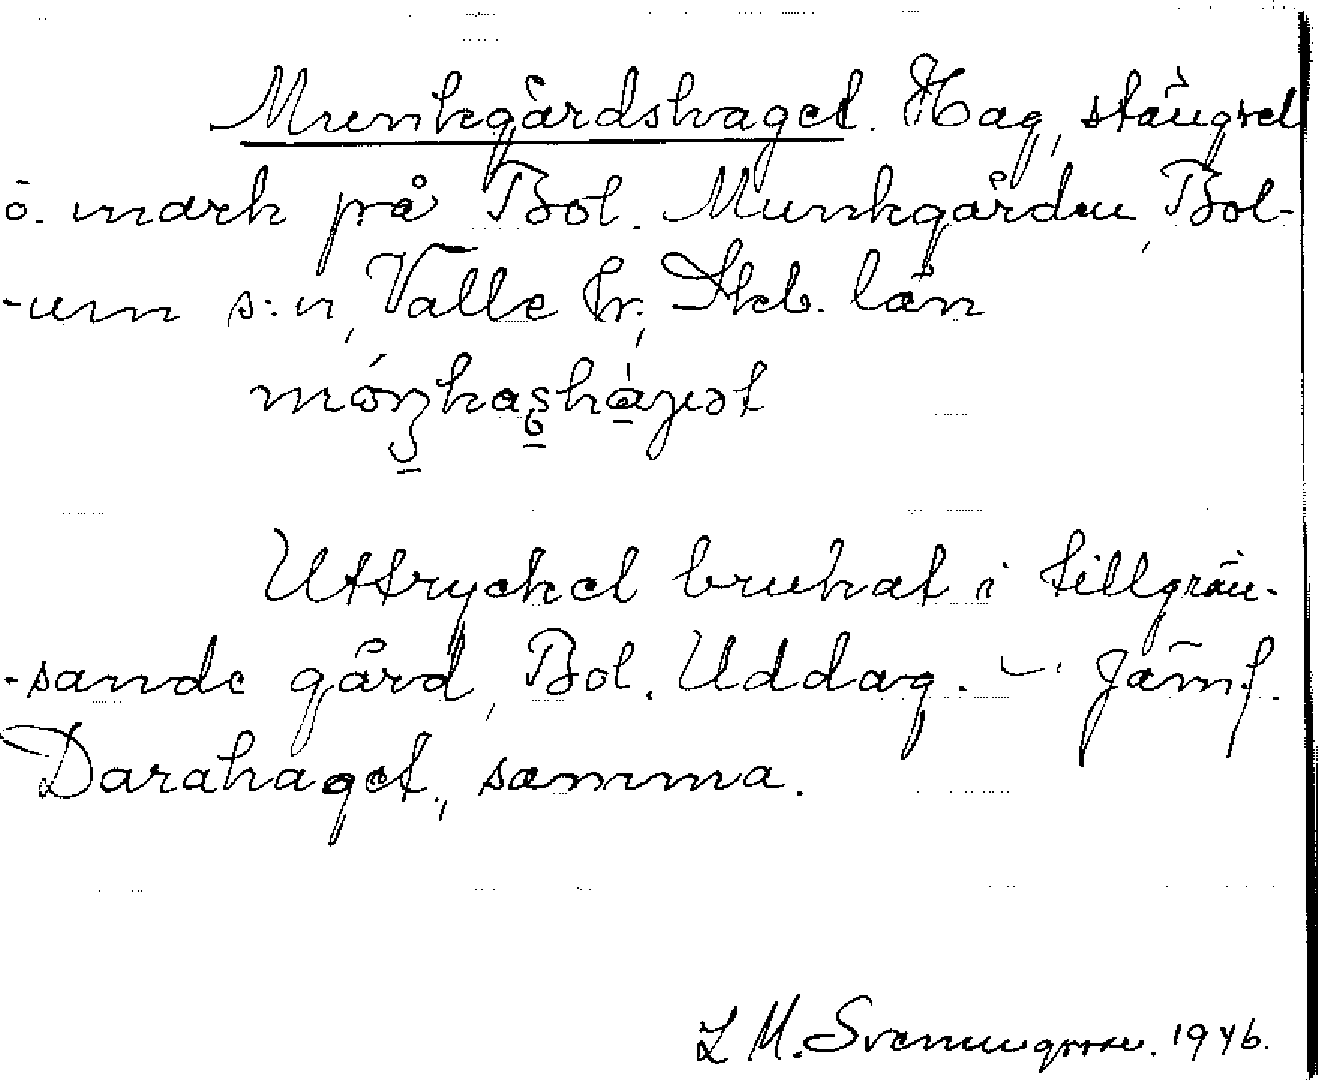 Munkgårdshaget. Hag, stängsel
o. mark på Bol. Munkgården, Bol-
-um s:n, Valle hr, Skb. län

Uttrycket brukat i tillgrän-
-sande gård, Bol. Uddag. — Jämf.
Darahaget, samma.
L M. Svenungsson. 1946.